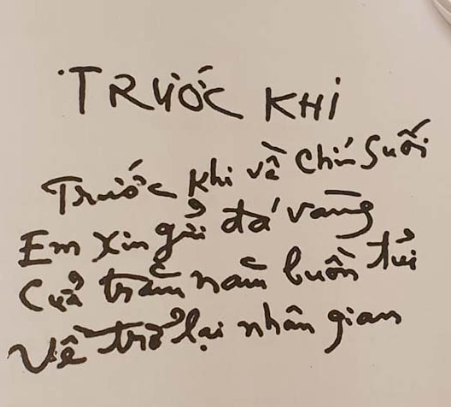 TRƯỚC KHI
Trước khi về chín suối
Em xin gửi đá vàng
Của trăm năm buồn tủi
Về trở lại nhân gian